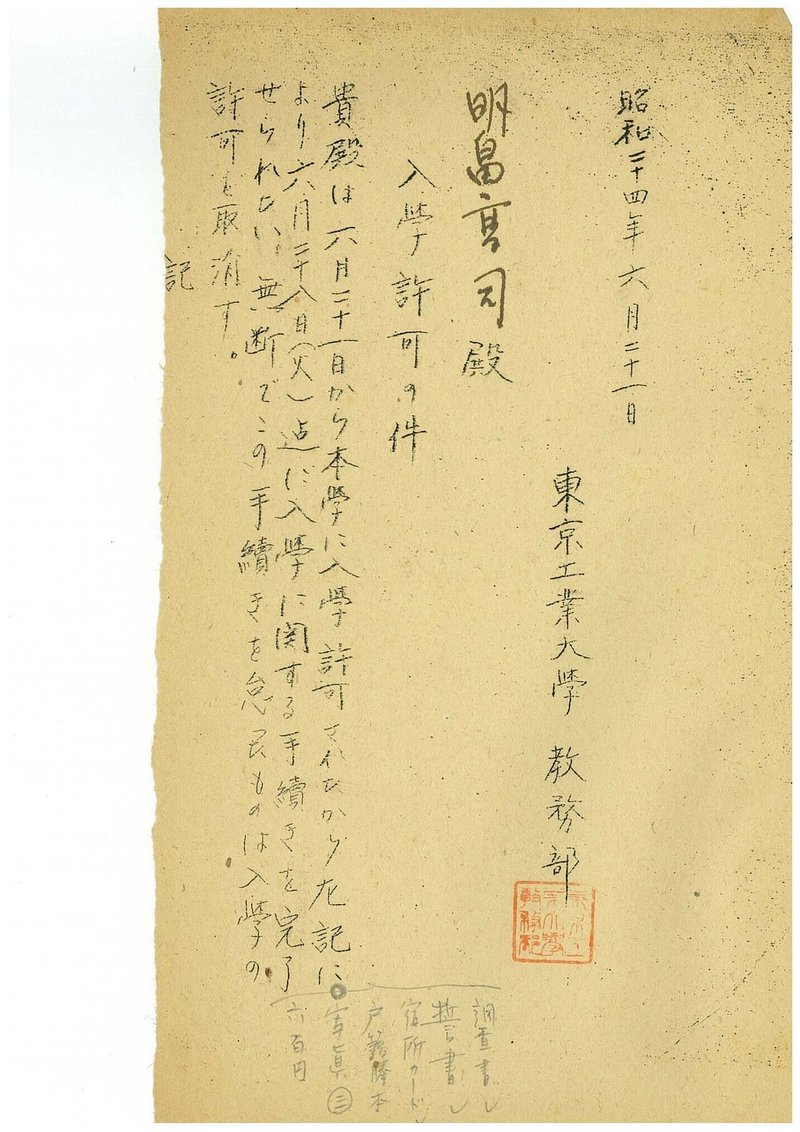 昭和二十四年六月二十一日
東京工業大學 教務部
明畠高司殿
入學許可の件
貴殿は六月二十一日から本學に入學許可されたから左記に
より六月二十八日(火)迄に入學に関する手續きを完了
せられたい。無断でこの手續きを怠るものは入學の
許可を取消す。
記
調査書
誓書
宿所カード
戸籍謄本
写眞 ③
六百円